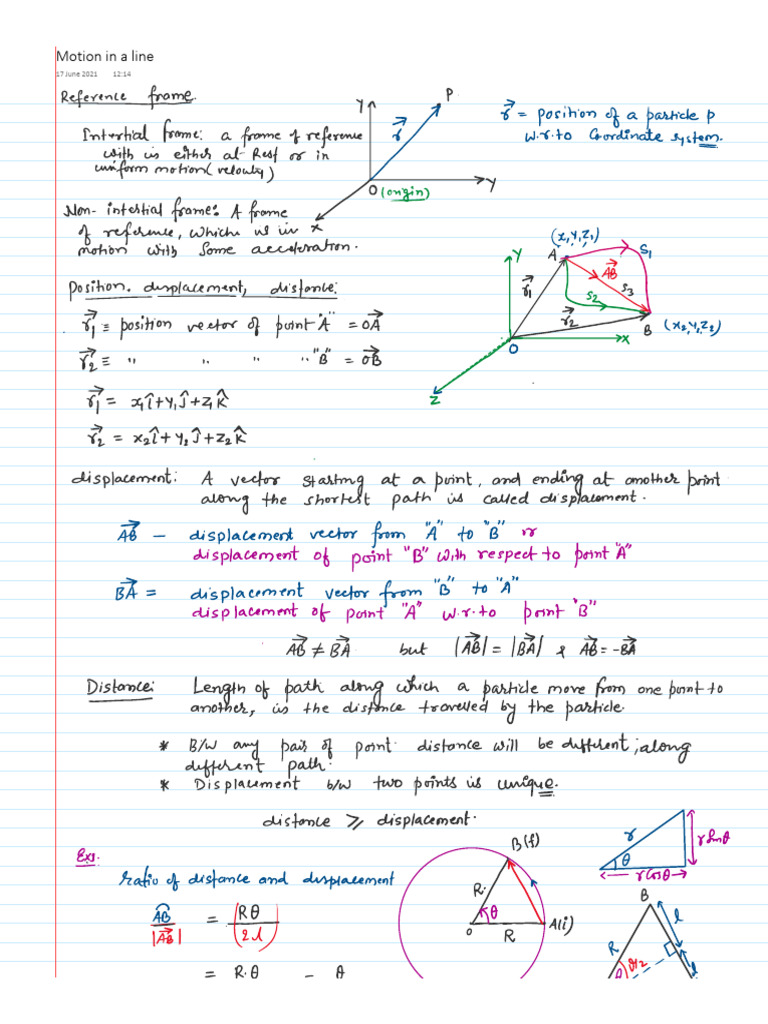 Motion in a line
17 June 2021 12:14
Reference frame.
Y
P
r⃗
Y
O (origin)
X
r⃗ = position of a particle P
w.r.to Coordinate system.
Intertial frame: a frame of reference
with is either at Rest or in
uniform motion (velouty)
Non-intertial frame: A frame
of reference, whichc us in
motion with Some acceleration.
Y
A (x₁,y₁,z₁)
S₁
AB⃗
r₁⃗
S₂
S₃
r₂⃗
B (x₂,y₂,z₂)
O
X
Z
Position. displacement, distance:
r₁⃗ ≡ position vector of point "A" = OA⃗
r₂⃗ ≡ " " " " "B" = OB⃗
r₁⃗ = x₁î+y₁ĵ+z₁k̂
r₂⃗ = x₂î+y₂ĵ+z₂k̂
displacement: A vector starting at a point, and ending at another point
along the shortest path is called displacement.
AB⃗ – displacement vector from "A" to "B" or
displacement of point "B" with respect to point "A"
BA⃗ = displacement vector from "B" to "A"
displacement of point "A" w.r.to point "B"
AB⃗ ≠ BA⃗ but |AB⃗| = |BA⃗| & AB⃗ = -BA⃗
Distance: Length of path along which a particle move from one point to
another, is the distance travelled by the particle.
* B/w any pair of point distance will be different, along
different path.
* Displacement b/w two points is unique.
distance ⩾ displacement.
Exs.
Ratio of distance and displacement
AB͡ / |AB⃗| = (Rθ / (2l))
= R.θ – θ
B(f)
R.
θ
O
R
A(i)
r
θ
r sinθ
r cosθ
B
l
R
θ/2
l